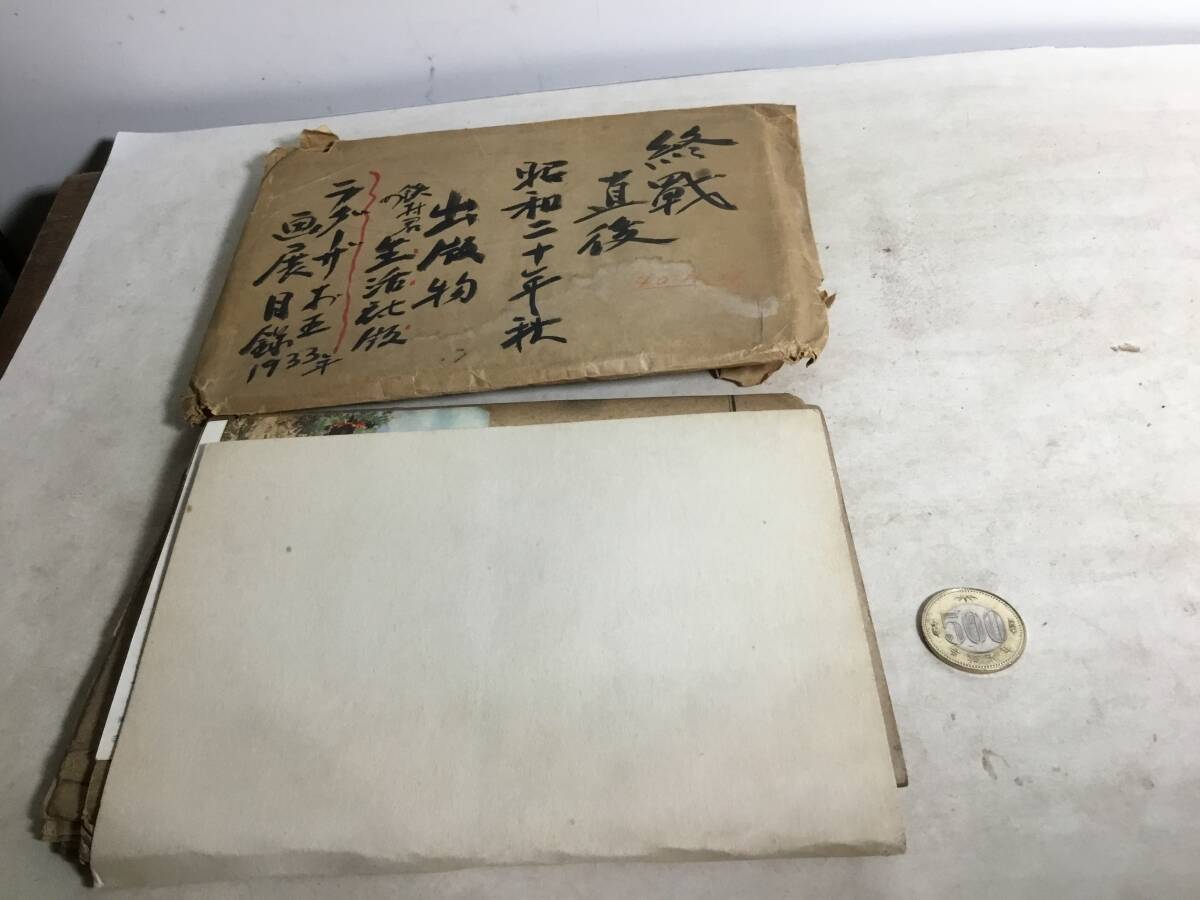 終戦
直後
昭和二十年秋
出版物
鉄村君の
生活社版
ラグーザお玉
画展目録
1933年
500